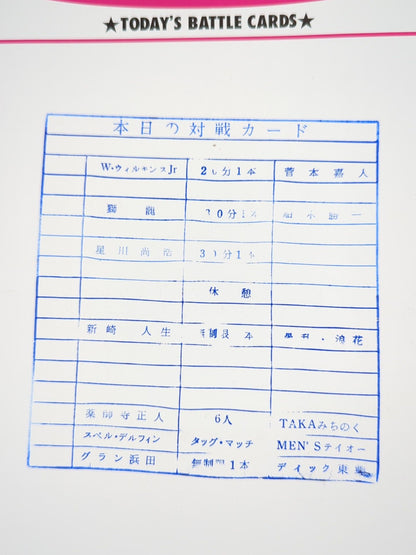 ★TODAY'S BATTLE CARDS★
本日の対戦カード
W・ウィルキンスJr 20分1本 菅本嘉人
獅龍 30分1本
星川尚浩 30分1本
休憩
新崎人生 ・浪花
薬師寺正人 6人 TAKAみちのく
スペル・デルフィン タッグ・マッチ MEN'Sテイオー
グラン浜田 無制限1本 ディック東郷